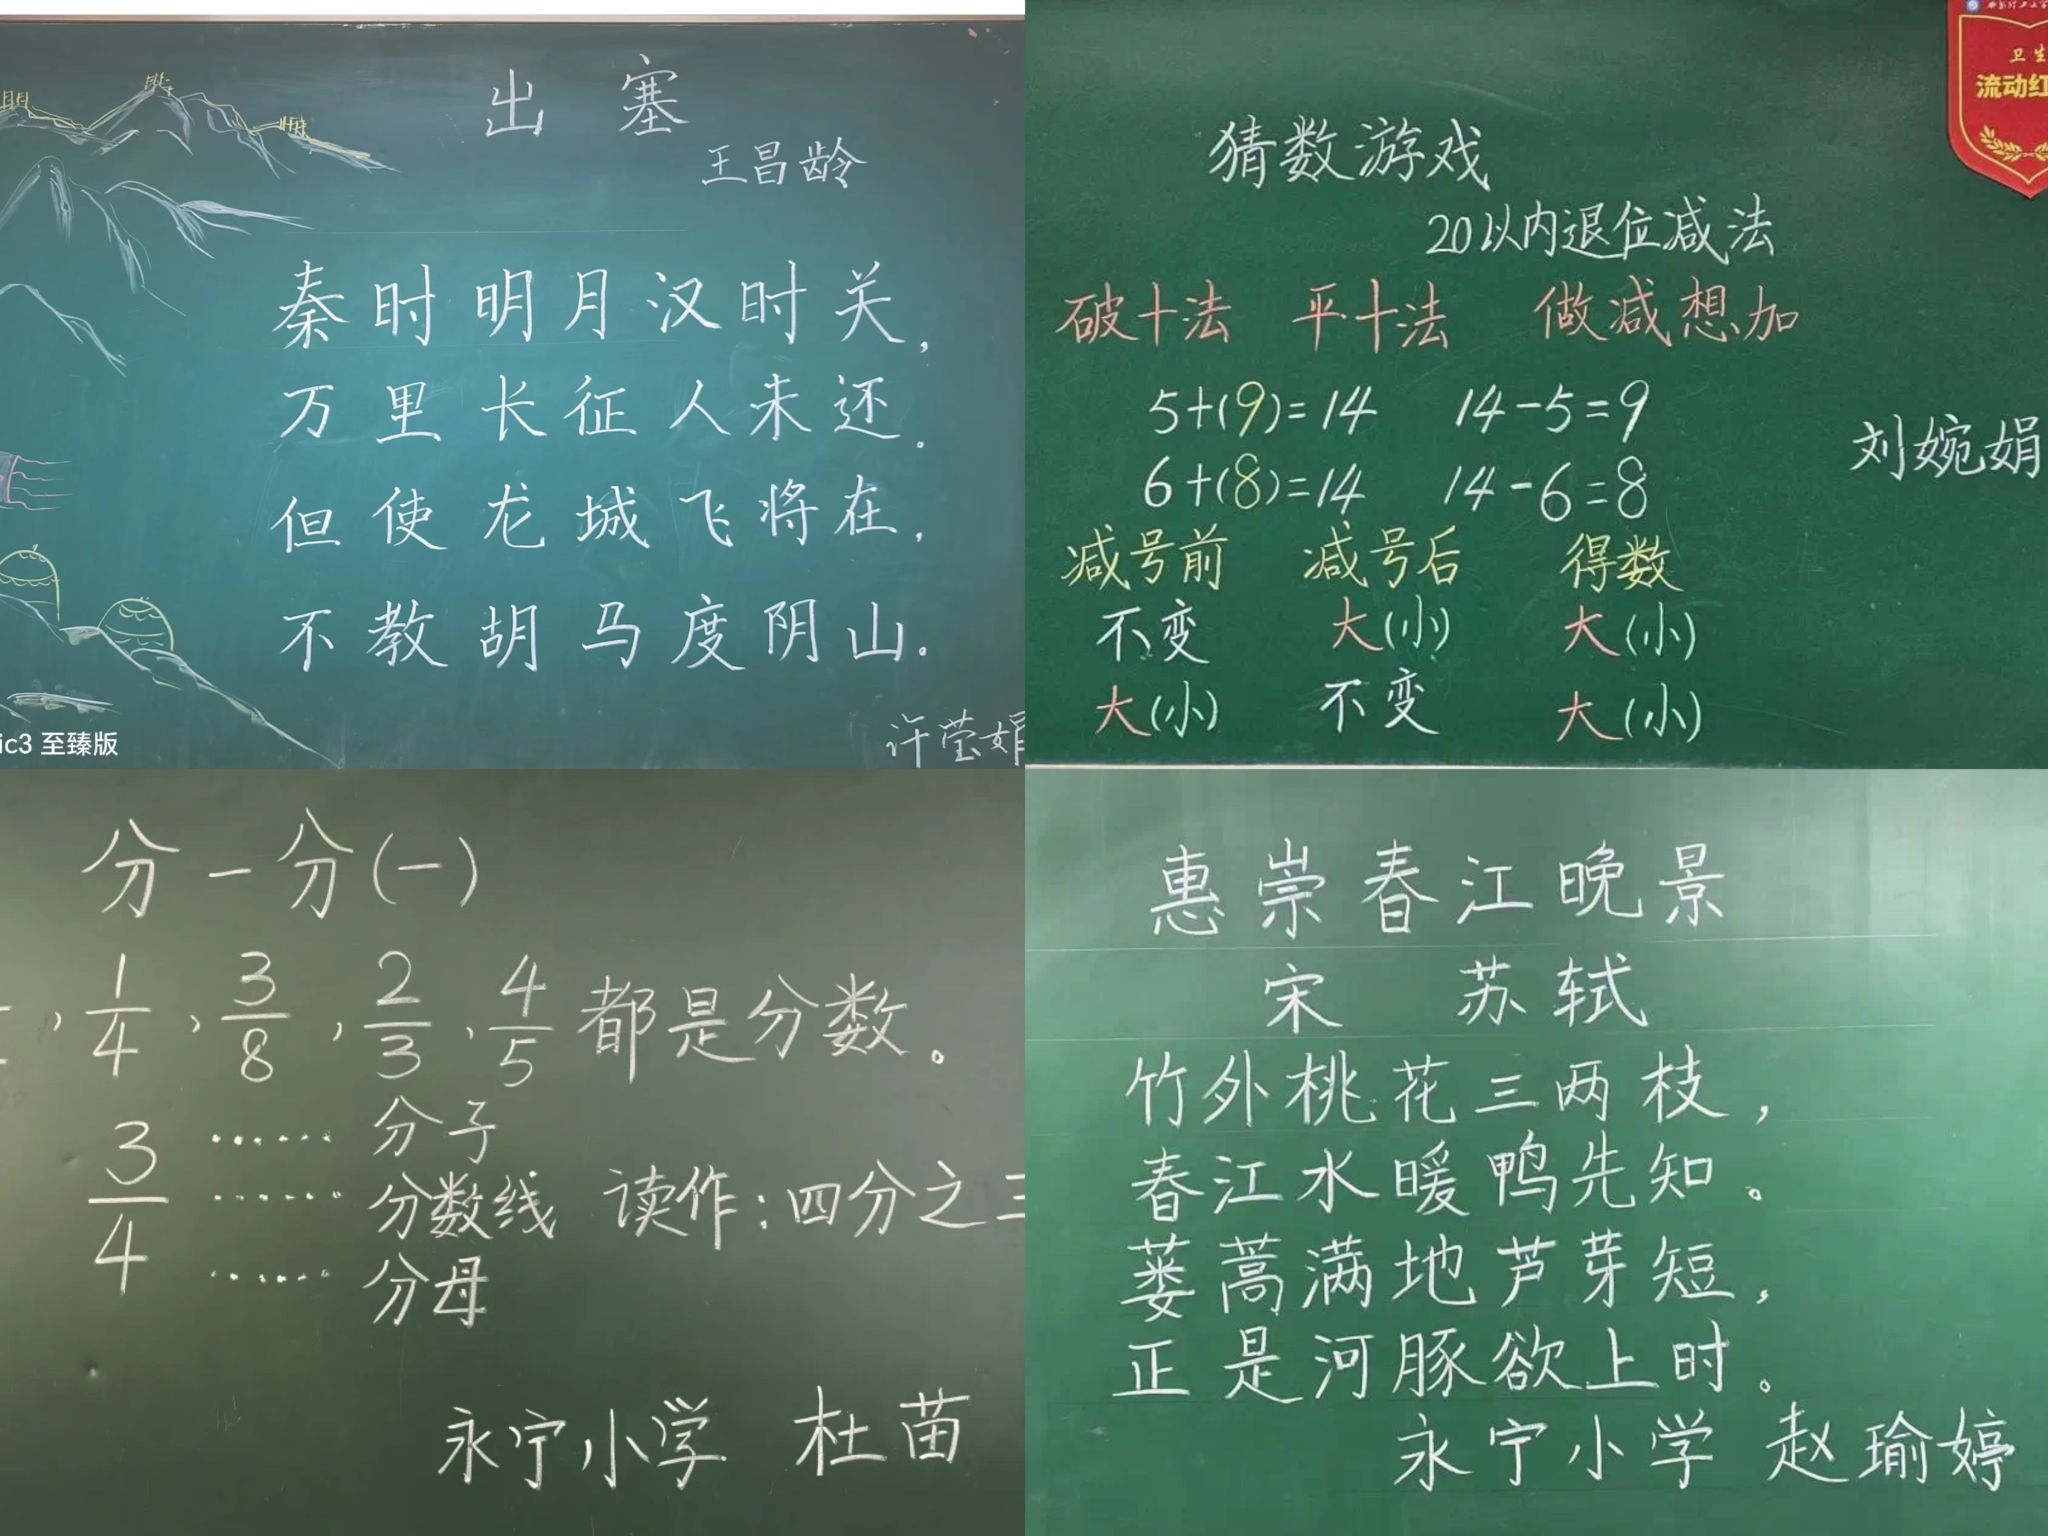 出塞
王昌龄
秦时明月汉时关，
万里长征人未还。
但使龙城飞将在，
不教胡马度阴山。
许莹娟
ic3 至臻版
卫生
流动红
猜数游戏
20以内退位减法
破十法 平十法 做减想加
5+(9)=14 14-5=9
6+(8)=14 14-6=8
刘婉娟
减号前 减号后 得数
不变 大(小) 大(小)
大(小) 不变 大(小)
分一分(一)
, 1/4, 3/8, 2/3, 4/5 都是分数。
3 …… 分子
—— …… 分数线 读作:四分之三
4 …… 分母
永宁小学 杜苗
惠崇春江晚景
宋 苏轼
竹外桃花三两枝，
春江水暖鸭先知。
蒌蒿满地芦芽短，
正是河豚欲上时。
永宁小学 赵瑜婷